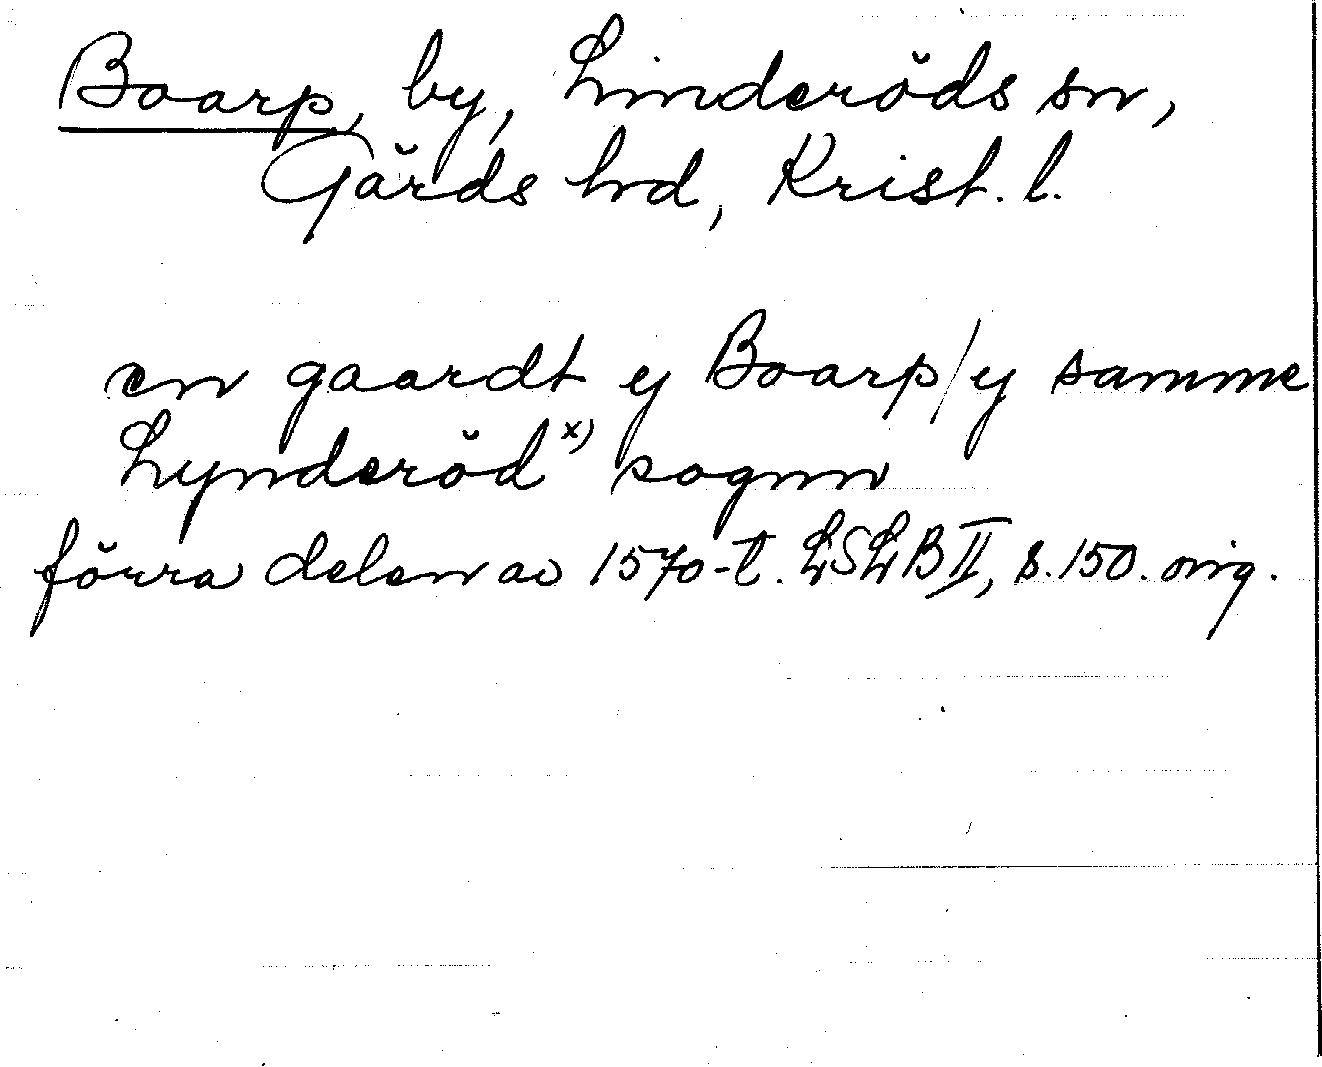 Boarp, by, Linderöds sn,
Gärds hd, Krist. l.
en gaardt y Boarp/y samme
Lynderöd x) sognn
förra delen av 1570-t. LSLB II, s. 150. orig.